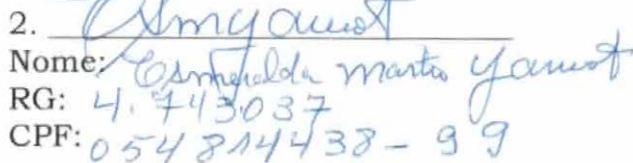 2. Esmyamot
Nome: Esmeralda Marta Yamot
RG: 4.743.037
CPF: 054814438-99